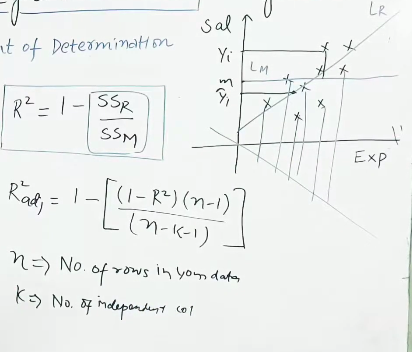 t of Determination
R² = 1 - SS_R / SS_M
R²adj = 1 - [(1-R²)(n-1) / (n-k-1)]
n => No. of rows in your data
K => No. of independent col
Sal
LR
Yi
LM
m
Exp